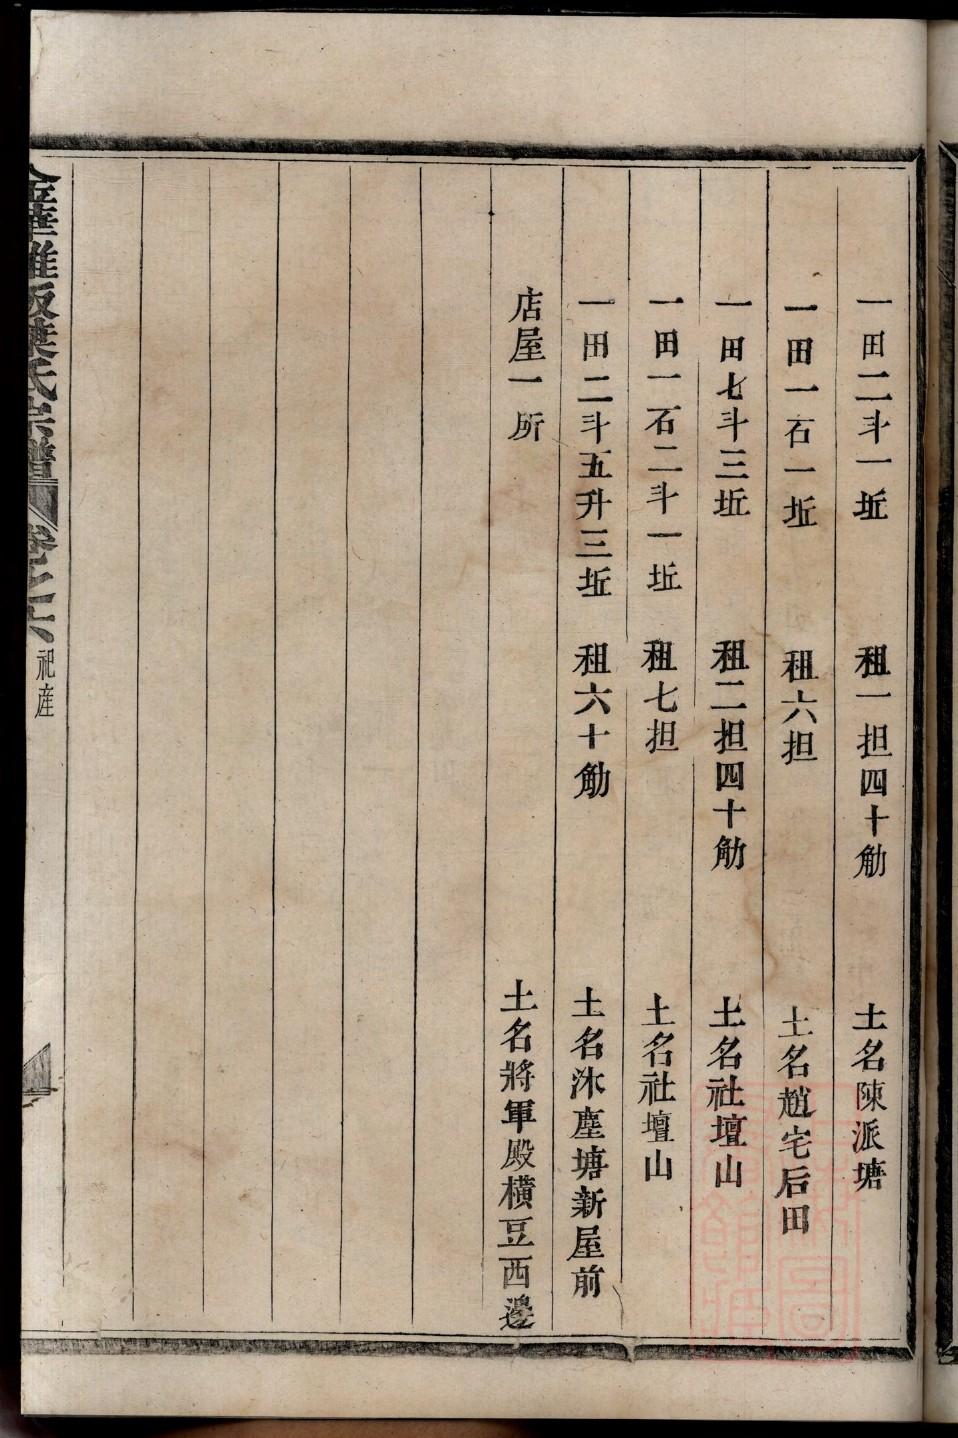 一田二斗一坵 租一担四十觔 土名陳派塘
一田一石一坵 租六担 土名趙宅后田
一田七斗三坵 租二担四十觔 土名社壇山
一田一石二斗一坵 租七担 土名社壇山
一田二斗五升三坵 租六十觔 土名沐塵塘新屋前
店屋一所 土名將軍殿橫豆西邊
金華雅畈葉氏宗譜 卷之六 祀產